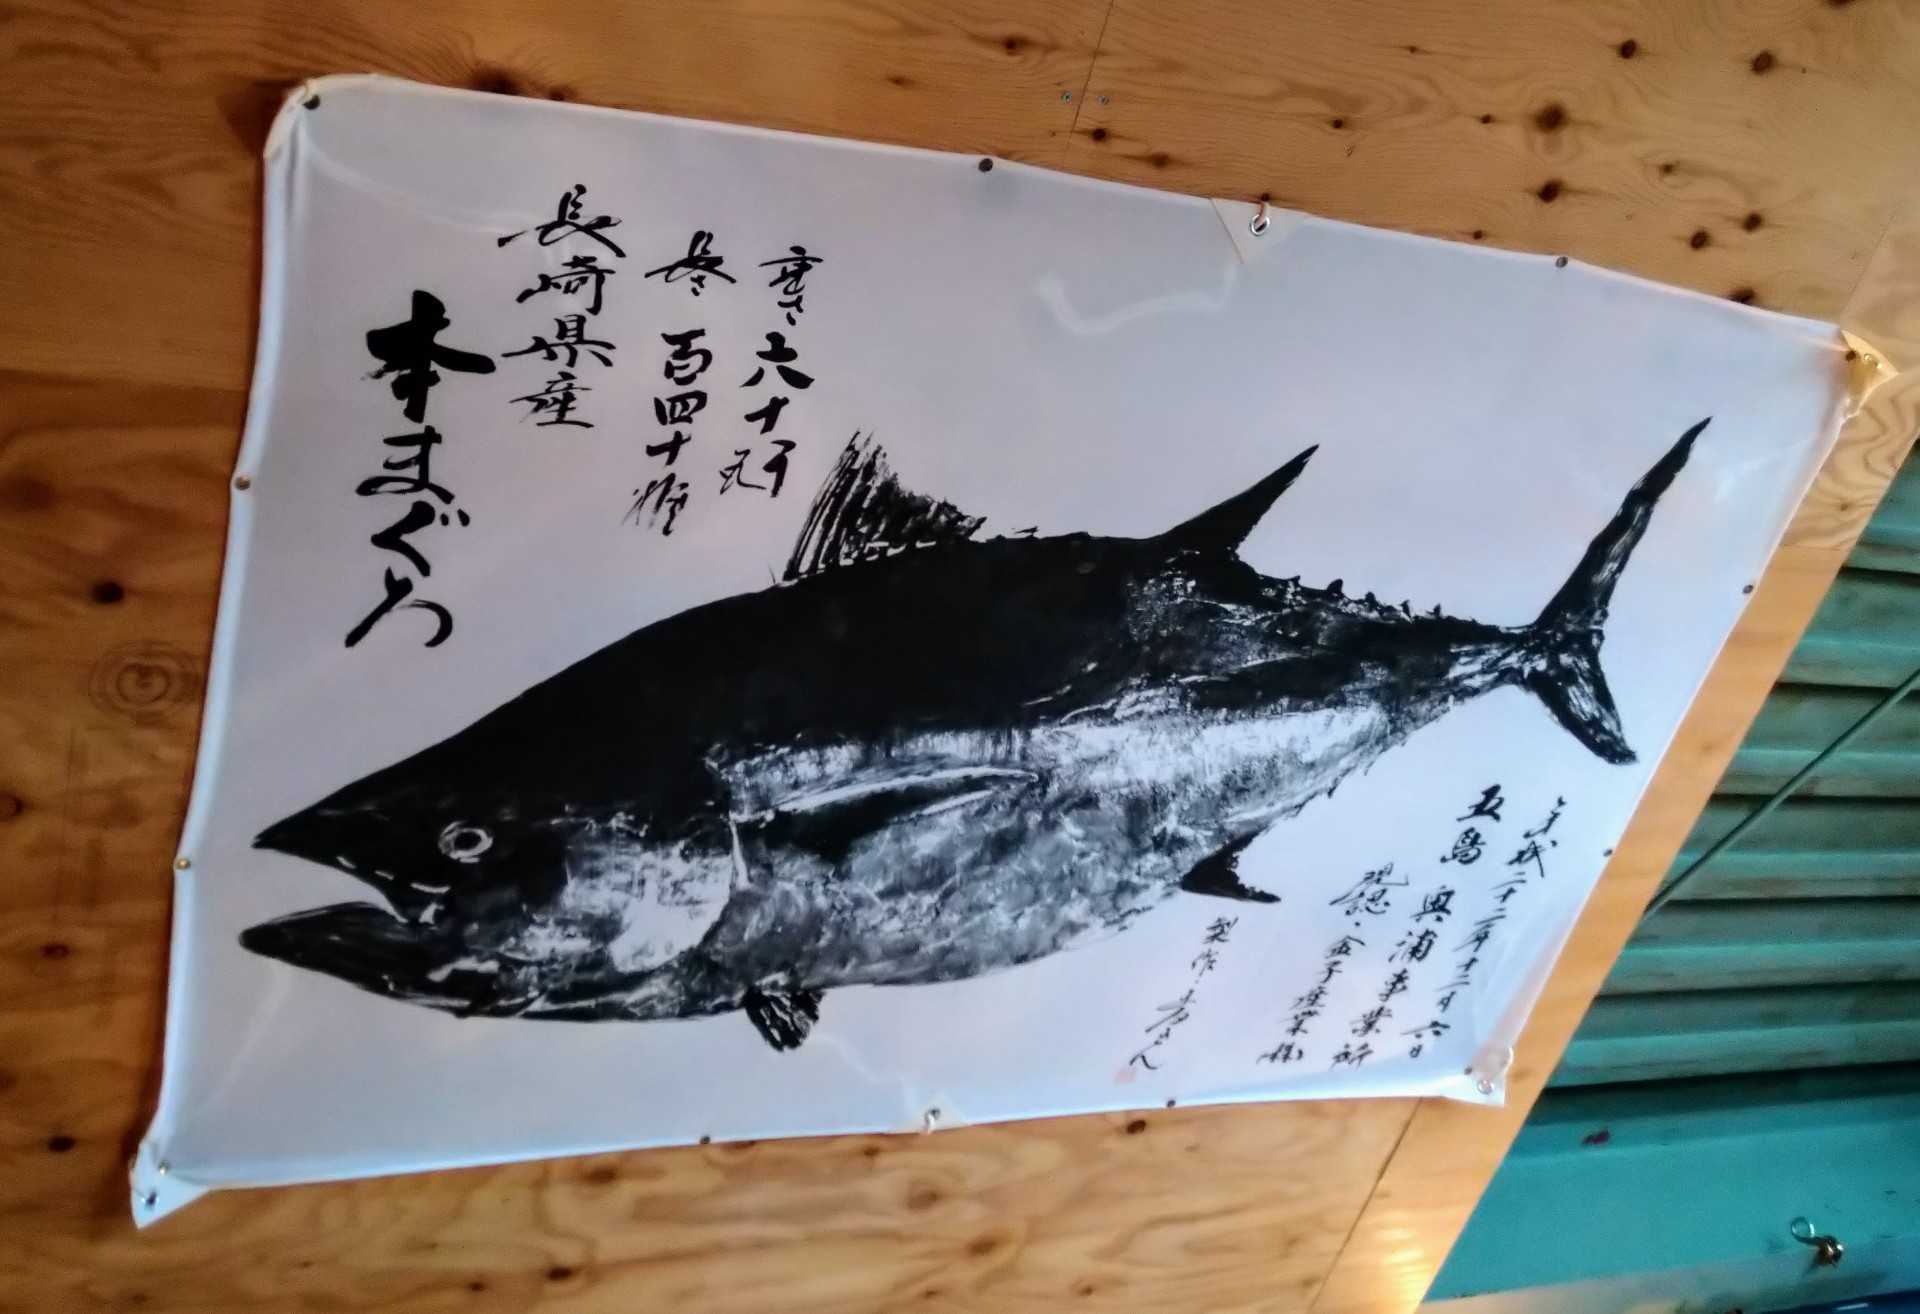 重さ 六十瓩
長さ 百四十糎
長崎県産
本まぐろ
平成二十二年十二月六日
五島 奥浦事業所
現認・金子産業㈱
製作・